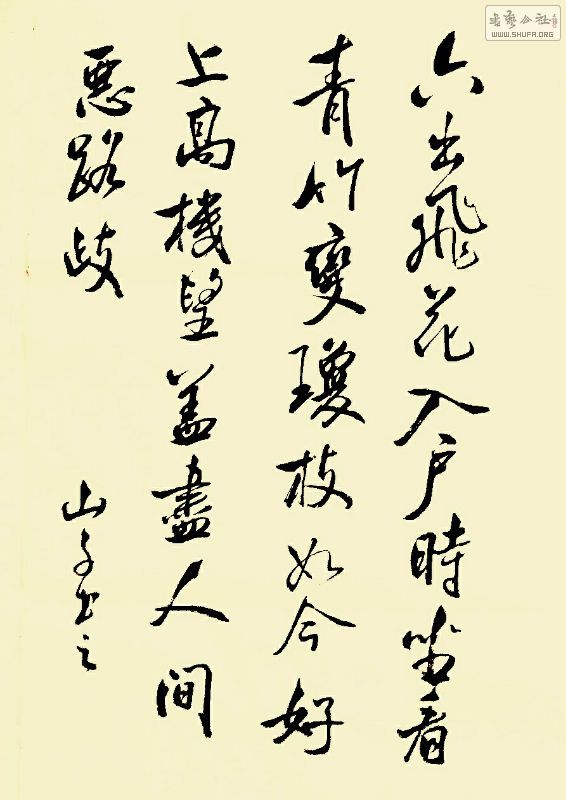 六出飛花入户時坐看
青竹變瓊枝如今好
上高機望盖盡人间
惡路歧
山子书之
书艺公社
WWW.SHUFA.ORG